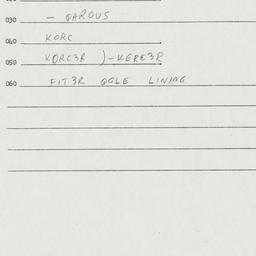 030 — GAROUS
040 KORC
050 KORC3R )-KERE3R
060 FIT3R OGLE LINING